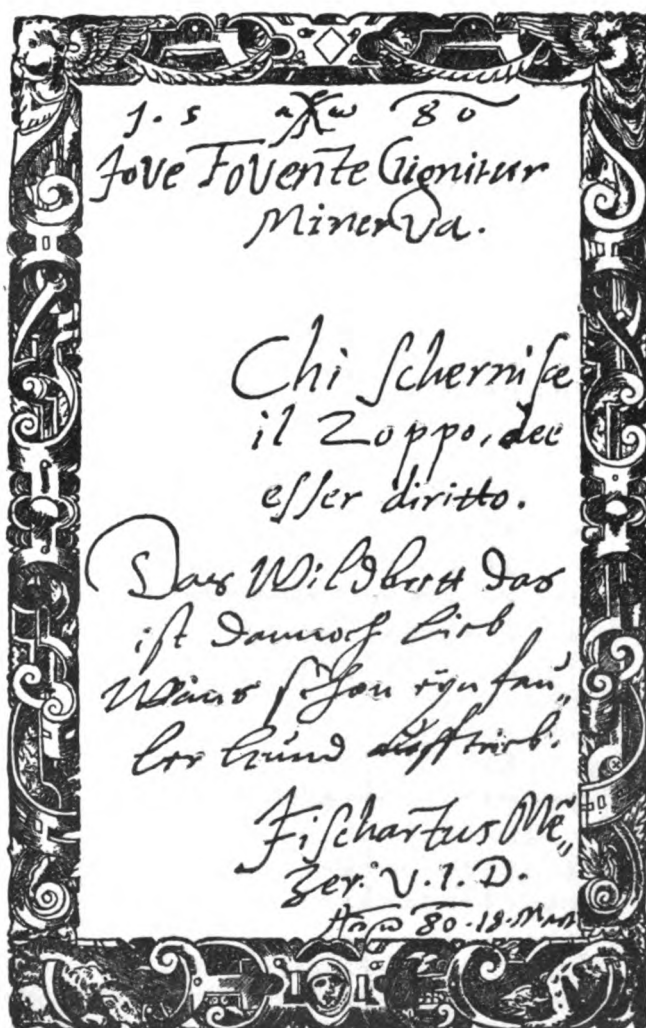 1 . 5 80
Jove Fovente Gignitur
Minerva.
Chi scherniſce
il Zoppo, dee
eſſer diritto.
Das Wildbrett das
iſt dannoch lieb
Wans ſchon eyn fau„
ler hund aufftrieb.
Fiſchartus Mẽ„
zer. V. I. D.
Anno 80 . 18 .